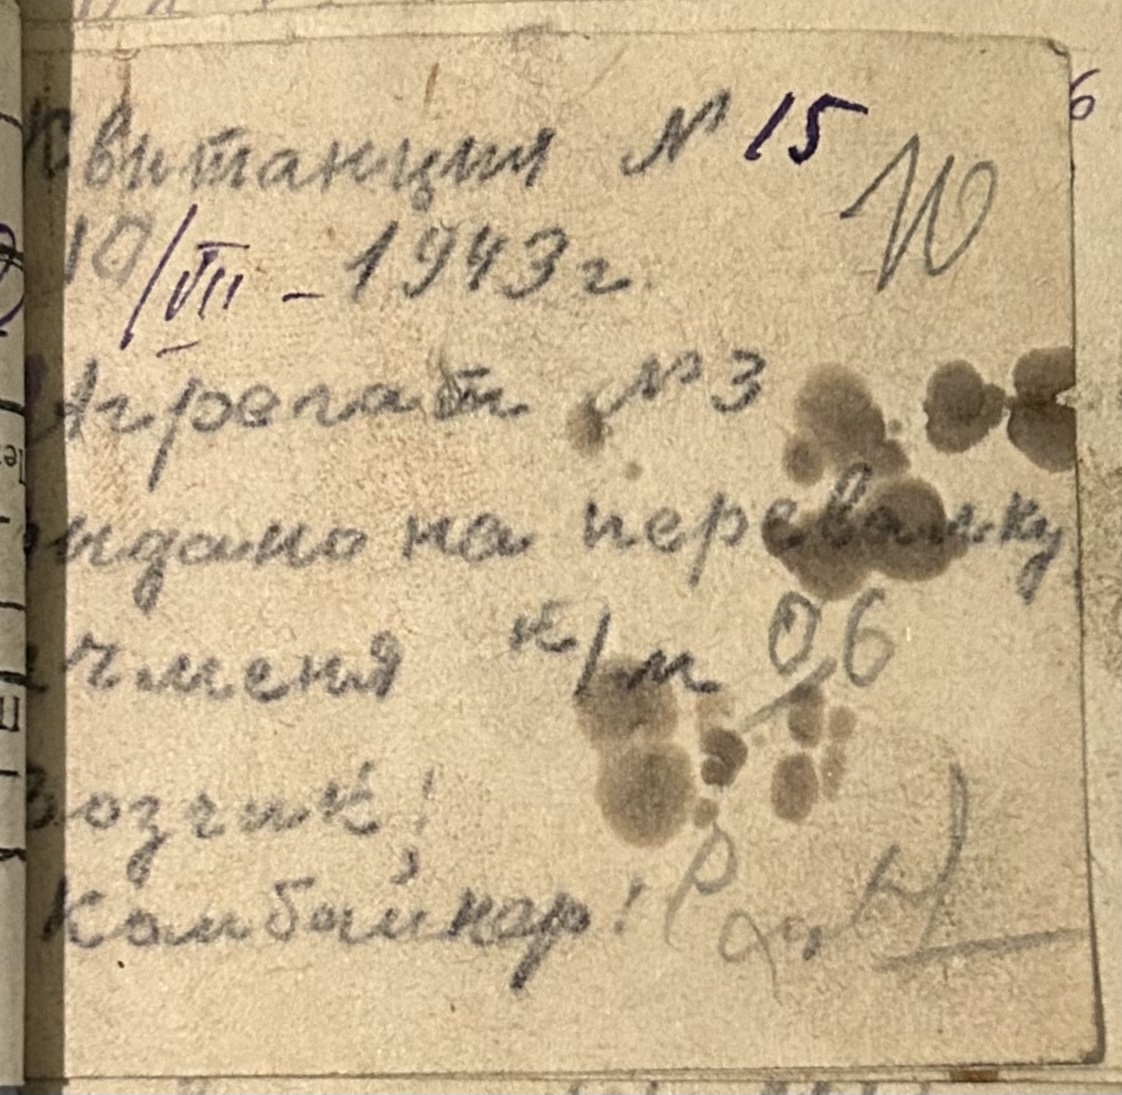 Квитанция № 15
10/VII - 1943 г.
Агрегат № 3
выдано на перевалку
ячменя к/м 06
Возчик!
Комбайнер!